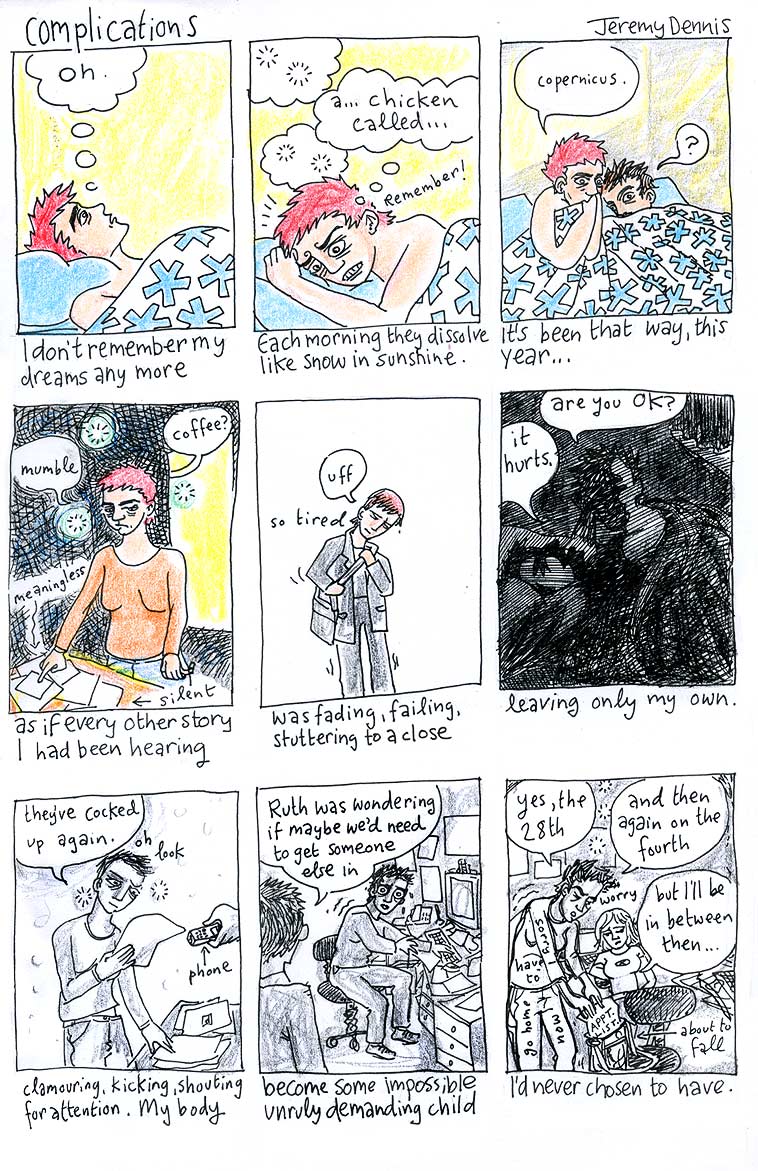 Complications
Jeremy Dennis
Oh.
I don't remember my
dreams any more
a... chicken
called...
Remember!
Each morning they dissolve
like snow in sunshine.
copernicus.
?
It's been that way, this
year...
coffee?
mumble
meaningless
← silent
as if every other story
I had been hearing
uff
so tired
was fading, failing,
stuttering to a close
are you OK?
it
hurts.
leaving only my own.
they've cocked
up again.
oh
look
phone
clamouring, kicking, shouting
for attention. My body
Ruth was wondering
if maybe we'd need
to get someone
else in
become some impossible
unruly demanding child
yes, the
28th
and then
again on the
fourth
worry
but I'll be
in between
then...
sorry
have
to
go home
now
APPT.
LIST.
about to
fall
I'd never chosen to have.